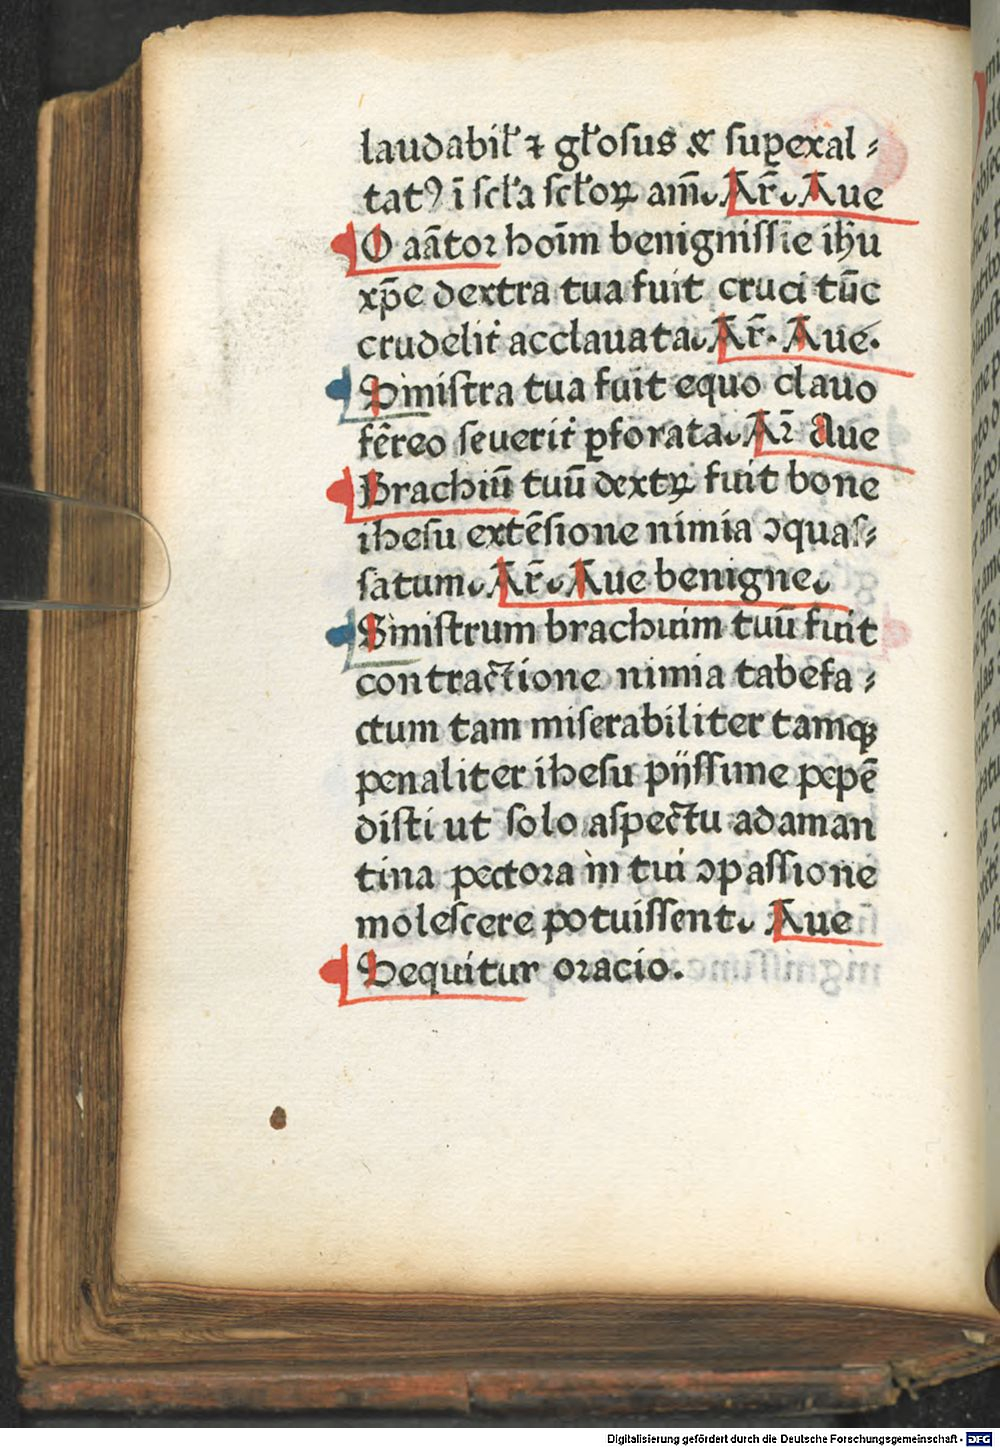 laudabil̴ ⁊ gl̴osus & suꝑexal⸗
tatꝰ ī scl̴a scl̴oꝝ am̄. Ar̄. Aue
O aātor hoīm benignissie ih̄u
xp̄e dextra tua fuit cruci tūc
crudelit̛ acclauata. Ar̄. Aue.
Sinistra tua fuit equo clauo
fēreo seuerit̛ ꝑforata. Ar̄ Aue
Brachiū tuū dextꝝ fuit bone
ihesu extēsione nimia ↄquas⸗
satum. Ar̄. Aue benigne.
Sinistrum brachium tuū fuit
contractione nimia tabefa⸗
ctum tam miserabiliter tamqꝫ
penaliter ihesu pijssime pepē
disti ut solo aspectu adaman
tina pectora in tui ↄpassione
molescere potuissent. Aue
Sequitur oracio.
Digitalisierung gefördert durch die Deutsche Forschungsgemeinschaft - DFG